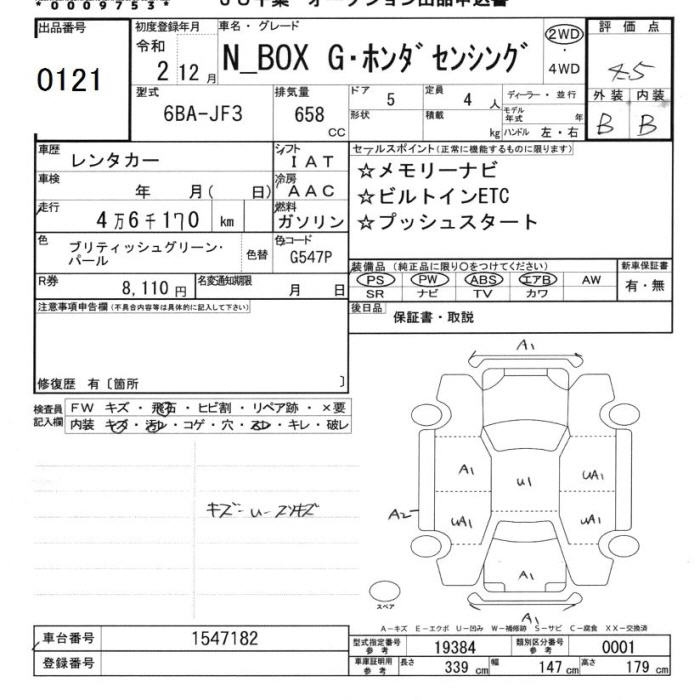 *00097553*
JU千葉 オークション出品申込書
出品番号
0121
初度登録年月
令和
2 12月
車名・グレード
N_BOX G・ホンダセンシング
2WD
・
4WD
評価点
4.5
外装 内装
B B
型式
6BA-JF3
排気量
658
CC
ドア
5
定員
4 人
ディーラー・並行
形状
積載
kg
モデル年式 年
ハンドル 左・右
車歴
レンタカー
シフト
IAT
車検
年 月( 日)
冷房
AAC
走行
4万6千170 km
燃料
ガソリン
色
ブリティッシュグリーン・パール
色替
色コード
G547P
R券
8,110円
名変通知期限
月 日
セールスポイント(正常に機能するものに限ります)
☆メモリーナビ
☆ビルトインETC
☆プッシュスタート
装備品(純正品に限り○をつけてください)
新車保証書
PS PW ABS エアB AW
SR ナビ TV カワ
有・無
後日品
保証書・取説
注意事項申告欄(不具合内容等は具体的に記入して下さい)
修復歴 有〔箇所 〕
検査員記入欄
FW キズ・飛石・ヒビ割・リペア跡・×要
内装 キズ・汚レ・コゲ・穴・スレ・キレ・破レ
キズ・U・スリキズ
A1
A1
U1
UA1
UA1
UA1
A2
A1
A1
スペア
A-キズ E-エクボ U-凹み W-補修跡 S-サビ C-腐食 XX-交換済
車台番号
1547182
登録番号
型式指定番号
参考
19384
類別区分番号
参考
0001
車庫証明用
参考
長さ 339 cm
幅 147 cm
高さ 179 cm